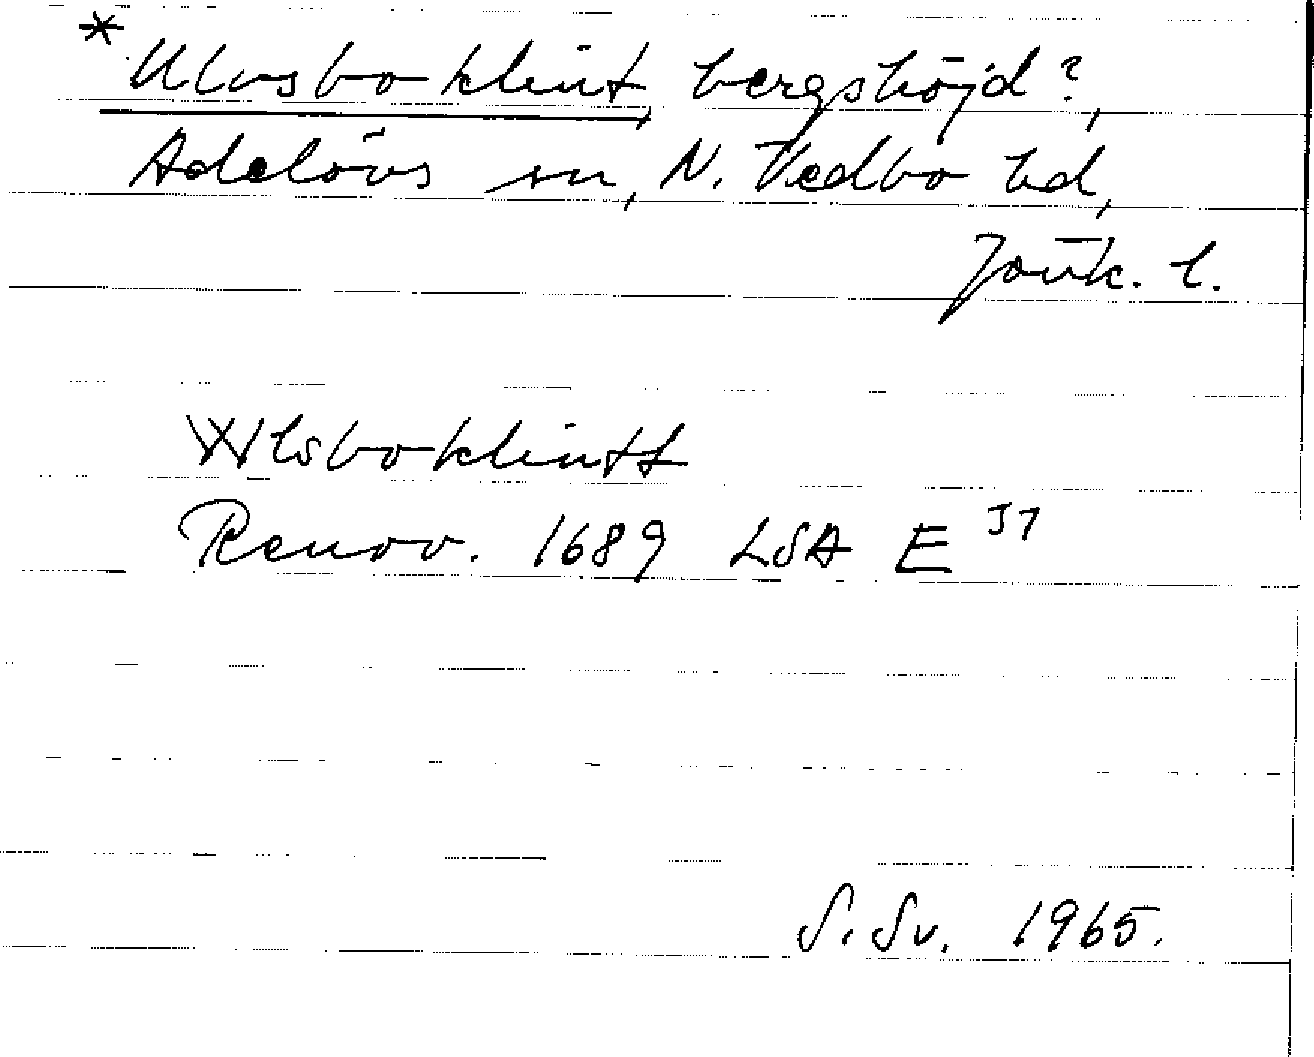 * Ulvsboklint, bergshöjd?,
Adelövs sn, N. Vedbo hd,
Jönk. l.
Wlsboklintt
Renov. 1689 LSA E 37
S. Sv. 1965.